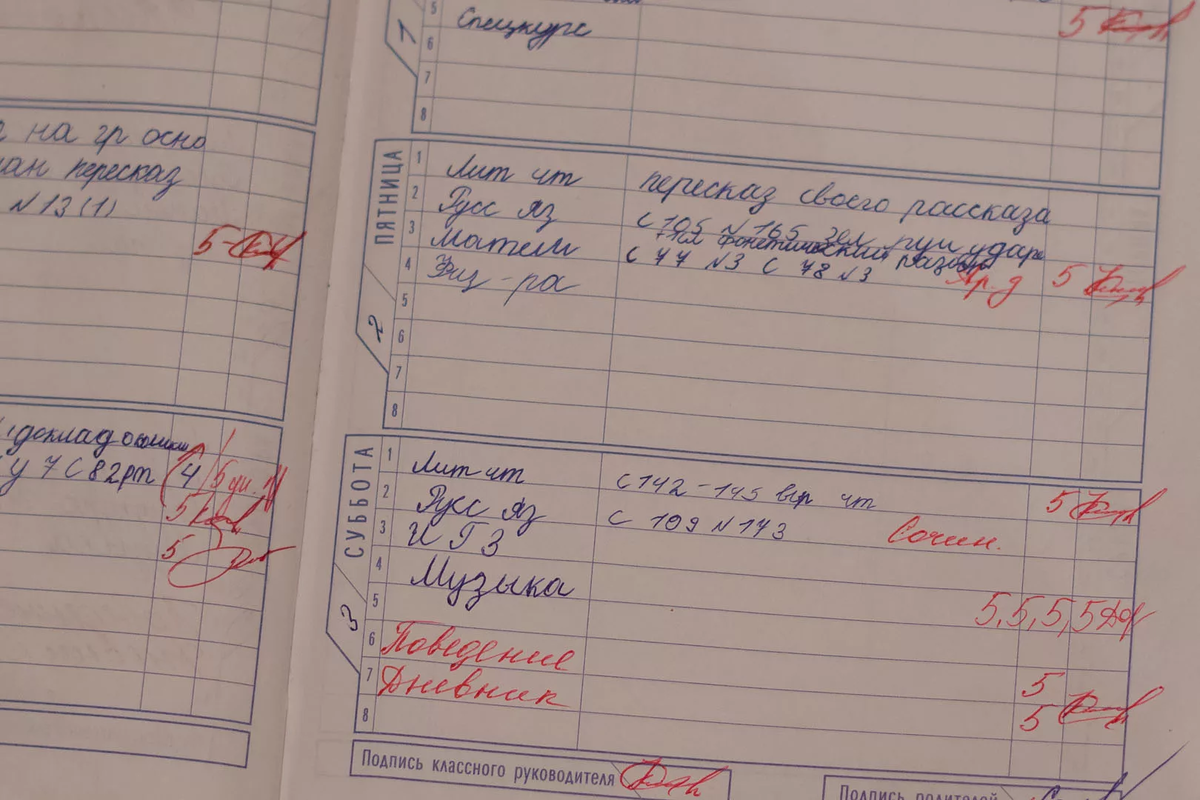 на гр осно
пересказ
N 13 (1)
5
доклад о
у 7 С 82 рт (4 5
5
5
5
Спецкурс 5
6
7
8
1
ПЯТНИЦА
1 Лит чт пересказ своего рассказа
2 Русс яз с 105 N 165 удар
фонетический разбор
3 Матем с 77 N3 С 78 N3 5
4 Физ-ра
5
6
7
8
2
СУББОТА
1 Лит чт с 142 - 145 выр чт 5
2 Русс яз с 109 N 143 Сочин.
3 ИГЗ
4 Музыка 5, 5, 5, 5
5
6 Поведение 5
7 Дневник 5
8
3
Подпись классного руководителя
Подпись родителей